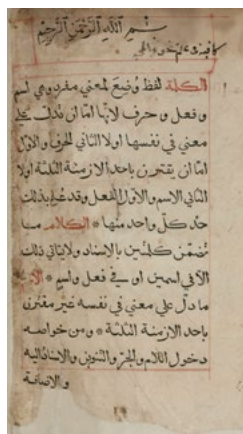 بسم الله الرحمن الرحيم
كافية في علم نحو
الكلمة لفظ وضع لمعنى مفرد وهي اسم
وفعل وحرف لانها اما ان تدل على
معنى في نفسها اولا الثاني الحرف والاول
اما ان يقترن باحد الازمنة الثلثة اولا
الثاني الاسم والاول الفعل وقد علم بذلك
حد كل واحد منها الكلام ما
تضمن كلمتين بالاسناد ولا يتاتى ذلك
الا في اسمين او في فعل واسم
ما دل على معنى في نفسه غير مقترن
باحد الازمنة الثلثة ومن خواصه
دخول اللام والجر والتنوين والاسناد اليه
والاضافة